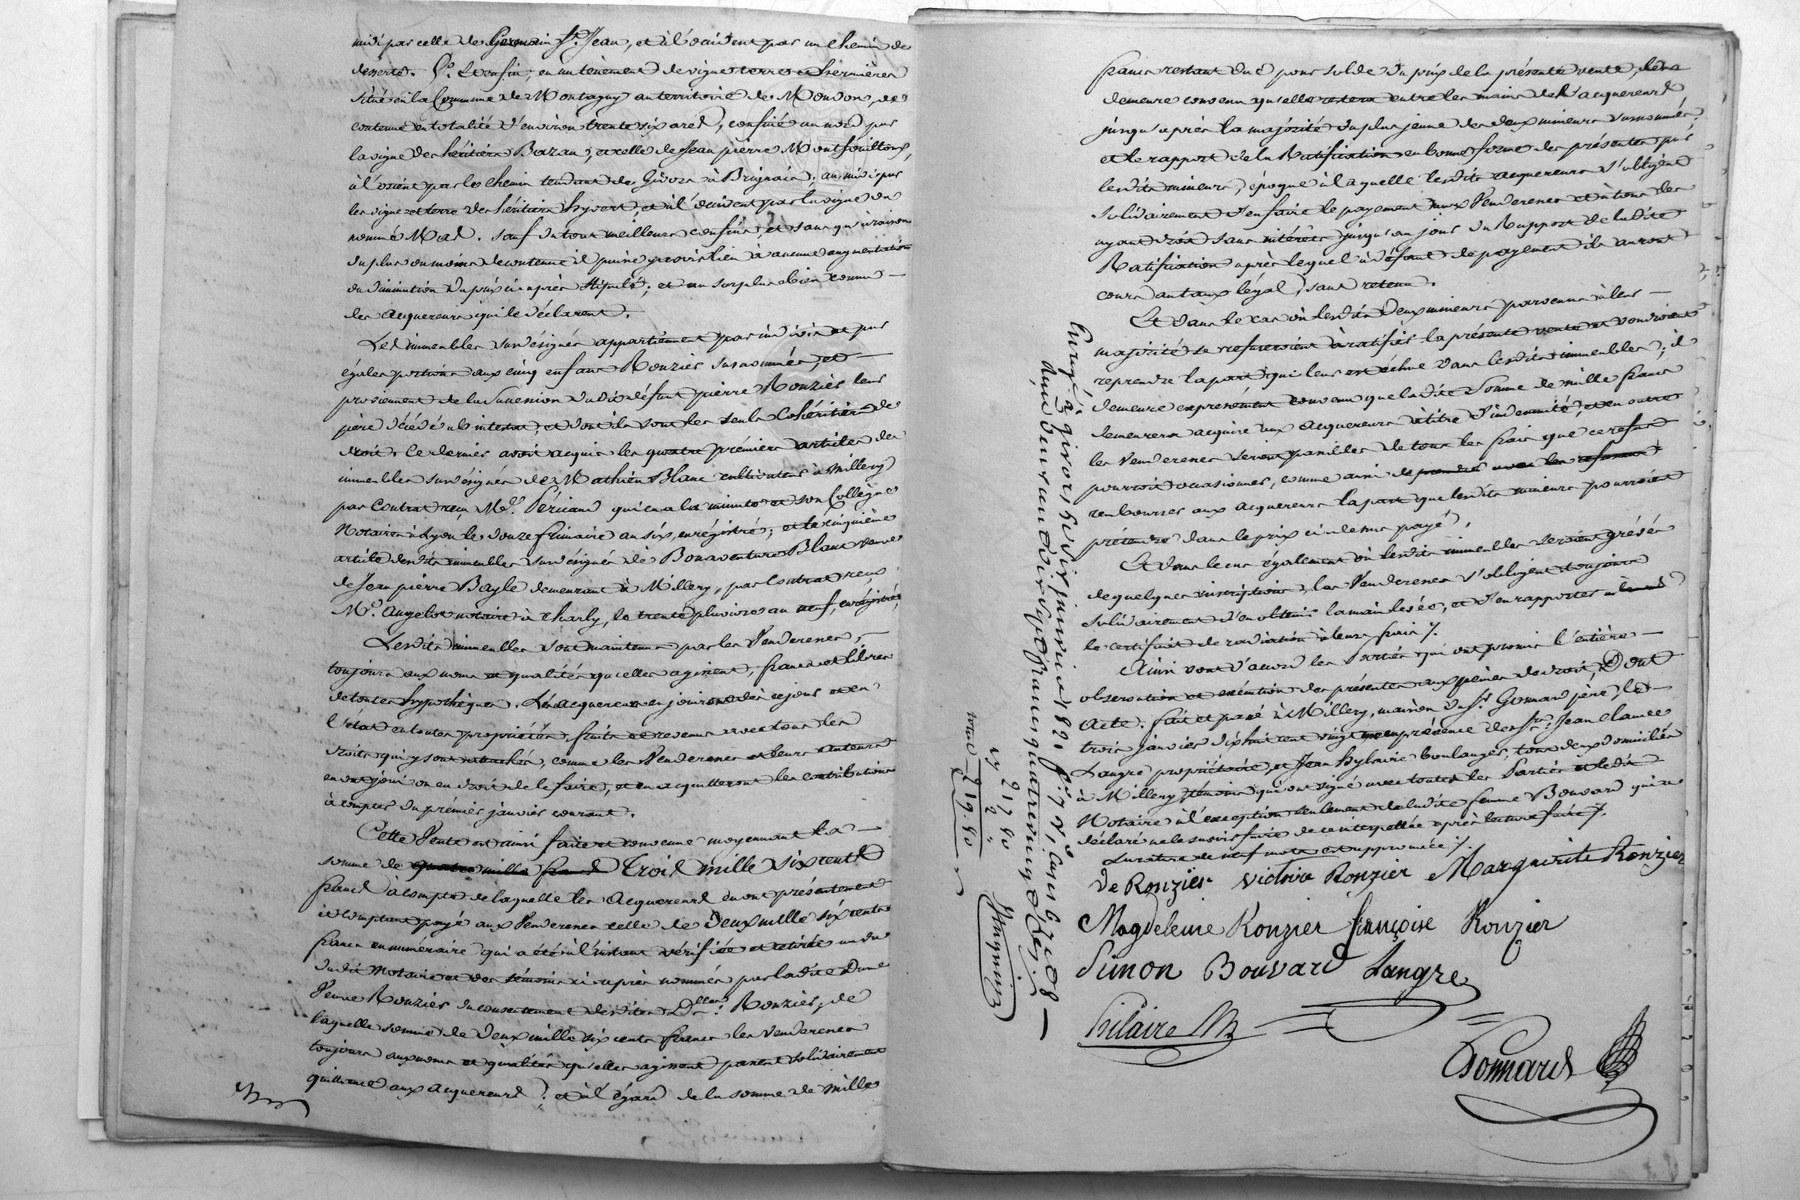 midi par celle de Germain St. Jean, et à l'occident par un chemin de
desserte. 5°. Et enfin, en un tenement de vigne terres et hermières
situé en la Commune de Montagny au territoire de Moudon, de
contenue en totalité d'environ trente six ares, confiné au nord par
la vigne des héritiers Bazan, et celle de Jean pierre Montfouilloux,
à l'orient par les chemin tendant de Givors à Brignais; au midi par
les vigne et terre des héritiers hyvert, et à l'occident par la vigne du
nommé Mal. Sauf du tout meilleurs confins, et sans qu'à raison
du plus ou moins de contenue il puisse y avoir lieu à aucune augmentation
ou diminution du prix ci-après stipulé; et au surplus bien connu
des acquereurs qui le déclarent.
Les immeubles susdésignés appartiennent par indivis et par
égales portions aux cinq enfans Ronzier susnommés, et
proviennent de la succession dudit défunt pierre Ronzier leur
père décédé ab intestat, et dont ils sont les seuls Cohéritiers de
droit. Ce dernier avoit acquis les quatre premiers articles des
immeubles susdésignés de Mathieu Blanc cultivateur à Millery
par Contrat reçu Me. Péricaud qui en a la minute et son Collègue
Notaires à Lyon le douze frimaire an six, enrégistré; et le cinquième
article desdits immeubles susdésignés de Bonaventure Blanc veuve
de Jean pierre Bayle demeurant à Millery, par Contrat reçu
Me. Angelot notaire à Charly, le trente pluviose an neuf, enrégistré;
Lesdits immeubles sont maintenus par les Venderesses,
toujours aux noms et qualités qu'elles agissent, francs et libres
de toutes hypothèques. Les acquereurs en jouiront dès ce jour et en
l'état en toutes propriétés, fruits et revenus avec tous les
droits qui y sont attachés, comme les Venderesses et leurs auteurs
en ont joui ou eu droit de le faire, et en acquitteront les contributions
à compter du premier janvier courant.
Cette Vente est ainsi faite et convenue moyennant la
somme de quatre mille francs Trois mille six cents
francs à compte de laquelle les Acquereurs en ont présentement
et comptant payé aux Venderesses celle de Deux mille six cents
francs en numéraire qui a été à l'instant vérifiée et retirée au vu
dudit Notaire et des témoins ci-après nommés par ladite Dame
Veuve Ronzier du consentement desdites Dlles. Ronzier, de
laquelle somme de deux mille six cents francs les venderesses
toujours aux noms et qualités qu'elles agissent passent solidairement
quittance aux acquereurs; et à l'égard de la somme de mille
francs restant due pour solde du prix de la présente vente, elle
demeure convenu qu'elle restera entre les mains de l'acquereurs
jusqu'après la majorité du plus jeune des deux mineurs susnommés,
et le rapport de la Ratification en bonne forme des présentes par
lesdits mineurs, époque à laquelle lesdits acquereurs s'obligent
solidairement d'en faire le payement aux Venderesses et à tous les
ayant droit sans intérêts jusqu'au jour du Rapport de ladite
Ratification après lequel à défaut de payement ils auront
cours au taux légal, sans retenue.
Et dans le cas où lesdits deux mineurs parvenus à leur
majorité se refuseroient à ratifier la présente vente et voudroient
reprendre la part qui leur est échue dans lesdits immeubles; il
demeure expressement convenu que ladite somme de mille francs
demeurera acquise aux acquereurs à titre d'indemnité, et en outre
les Venderesses seront passibles de tous les frais que ce refus
pourroit occasionner, comme aussi de
rembourser aux acquereurs la part que lesdits mineurs pourroient
prétendre dans le prix ci-dessus payé.
Et dans le cas également où lesdits immeubles seroient grévés
de quelques inscriptions, les Venderesses s'obligent toujours
solidairement d'en obtenir la mainlevée, et d'en rapporter
le certificat de radiation à leurs frais.
Ainsi sont d'accord les Parties qui ont promis l'entière
observation et exécution des présentes aux peines de droit, Dont
Acte. fait et passé à Millery, maison du Sr. Gomard père, le
trois janvier dix huit cent vingt un en présence des Srs. Jean Claude
Langre propriétaire, et Jean hylaire boulanger, tous deux domiciliés
à Millery, témoins qui ont signé avec toutes les Parties et ledit
Notaire à l'exception seulement de ladite femme Bouvard qui a
déclaré ne le savoir faire de ce interpellée après lecture faite.
La rature de neuf mots est approuvée.
De Ronzier victoire Ronzier Marguerite Ronzier
Magdeleine Ronzier françoise Ronzier
Simon Bouvard Langre
hilaire
Donnard
Enregé. à givors le dix janvier 1821 fo. 7 vo. Cases 6, 7 et 8